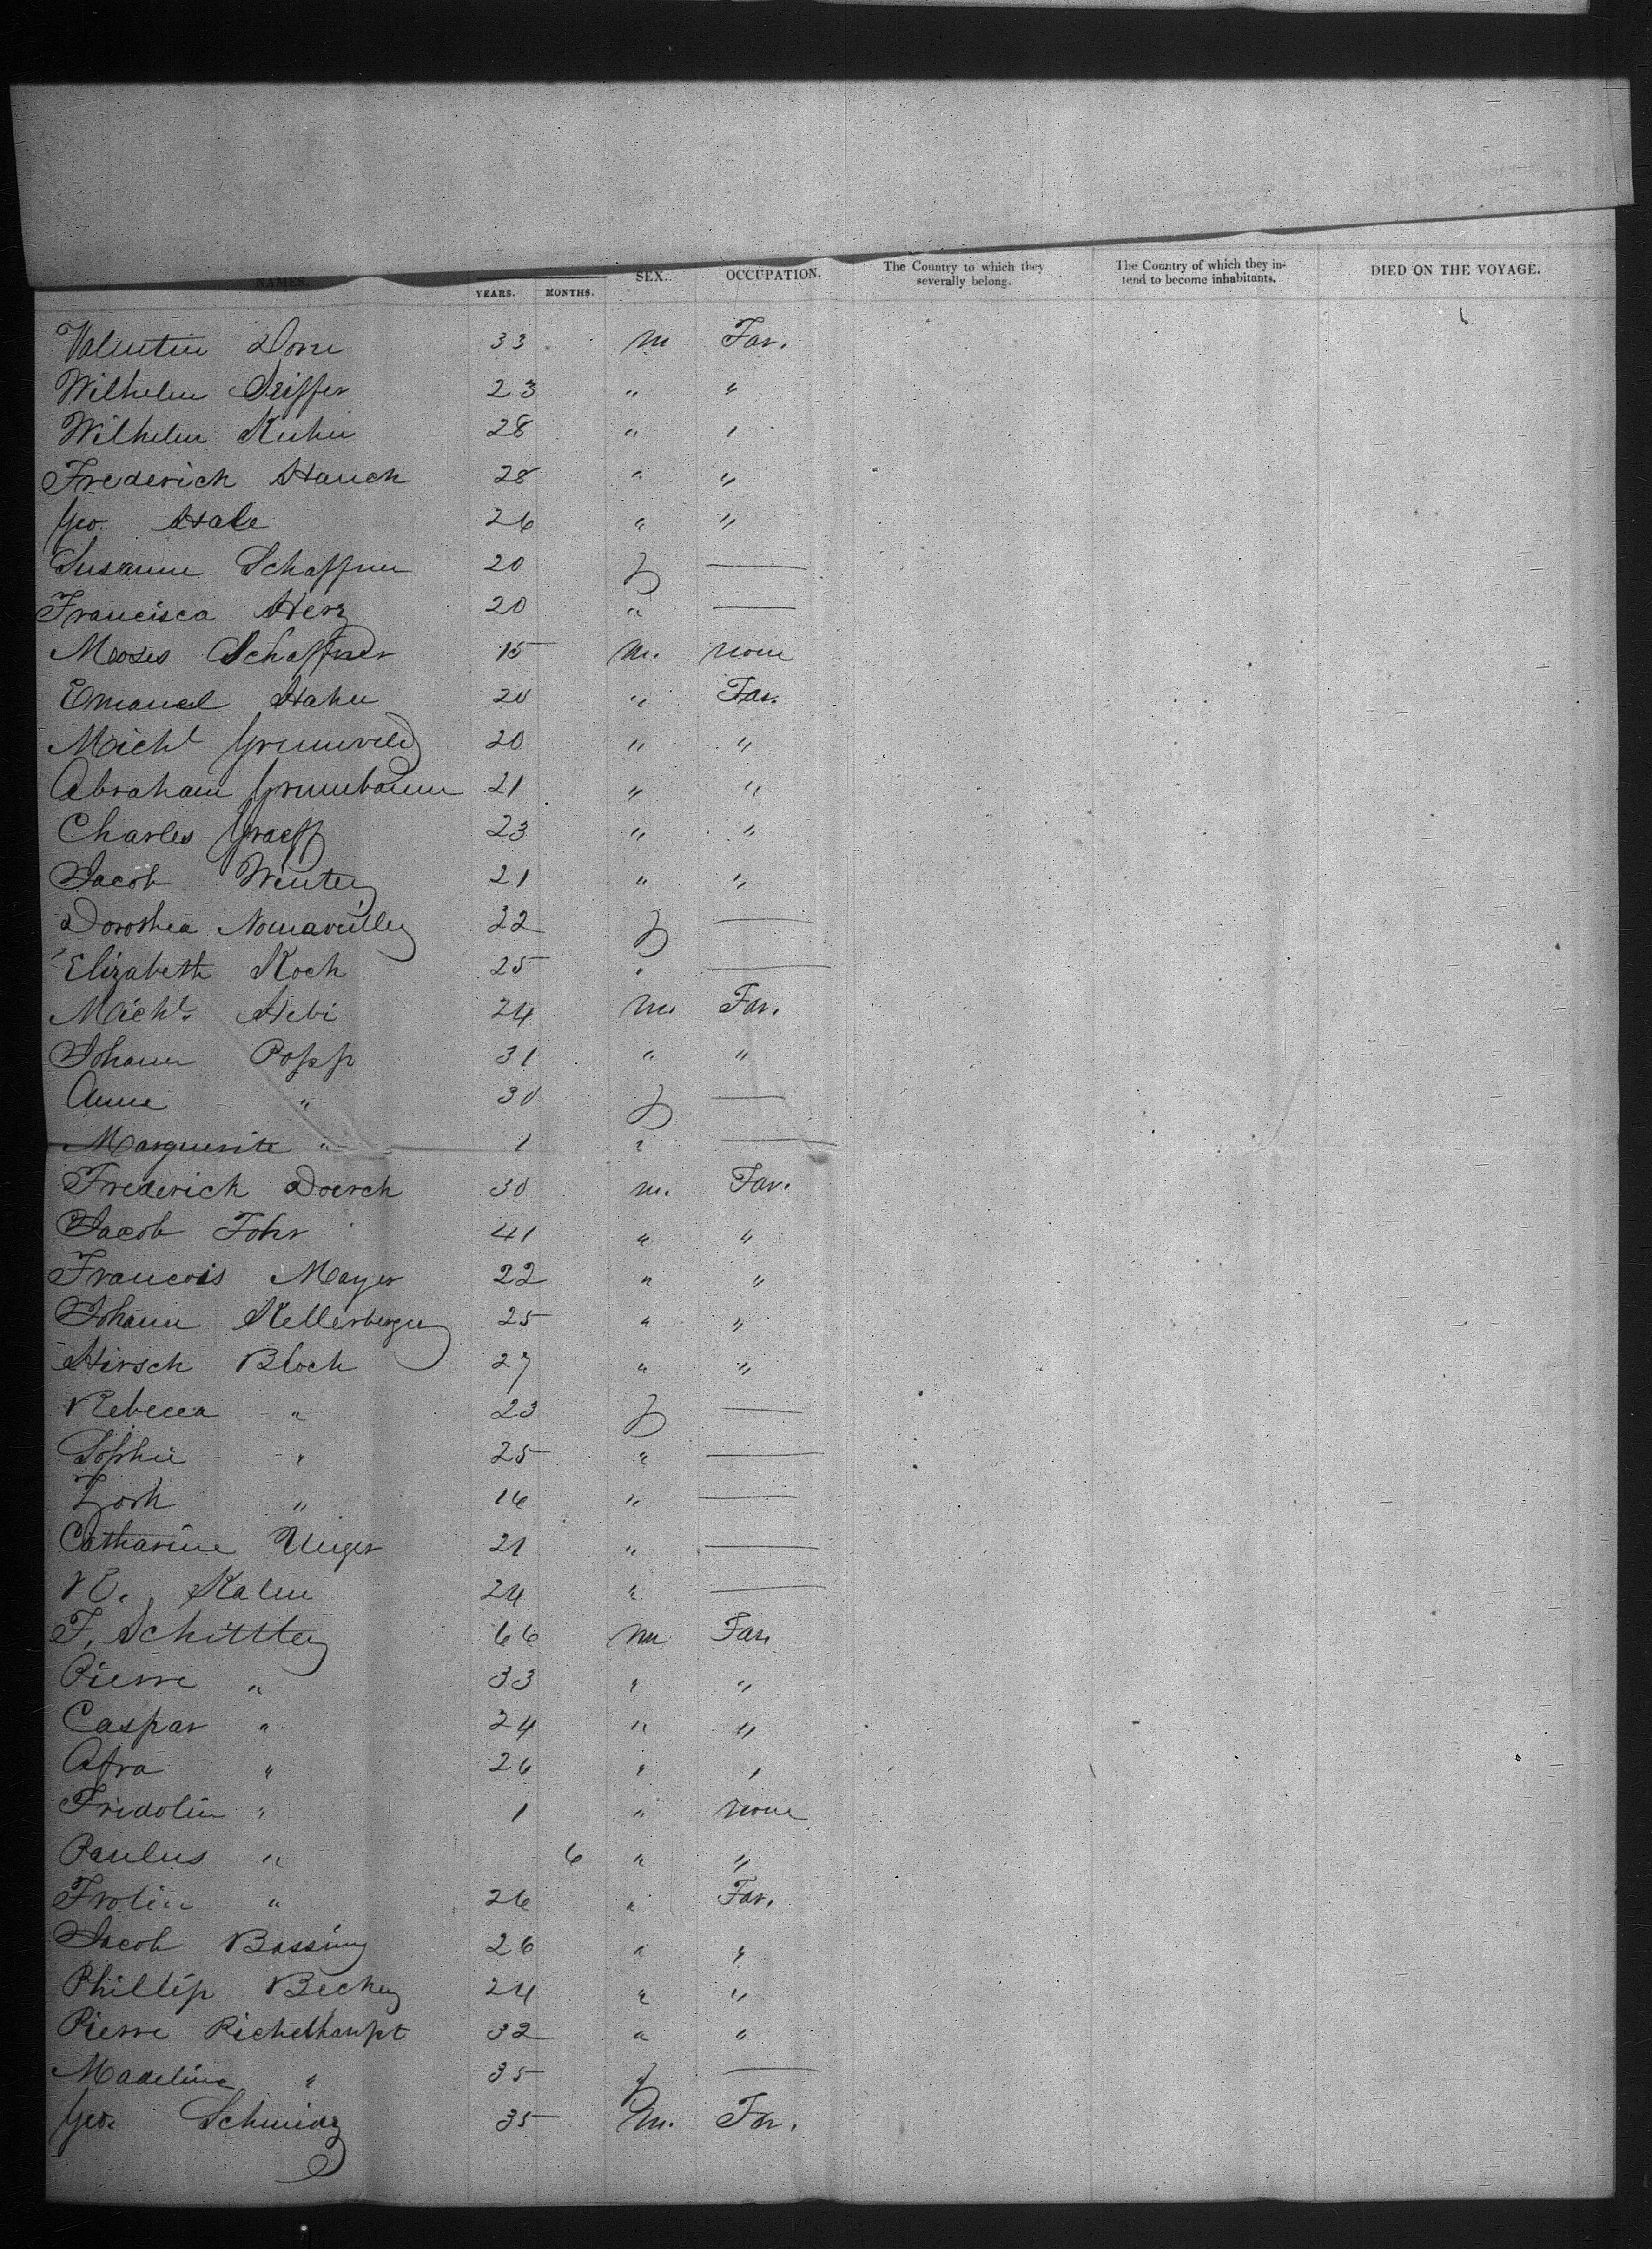 NAMES. YEARS. MONTHS. SEX. OCCUPATION. The Country to which they severally belong. The Country of which they intend to become inhabitants. DIED ON THE VOYAGE.
Valentin Dorn 33 m Far.
Wilhelm Seiffer 23 " "
Wilhelm Kuhn 28 " "
Frederich Hauck 28 " "
Geo. Hale 26 " "
Susanne Schaffner 20 f —
Francisca Herz 20 " —
Moses Schaffner 15 m. none
Emanuel Hahn 20 " Far.
Michl Grunwald 20 " "
Abraham Grunbaum 21 " "
Charles Graeff 23 " "
Jacob Winter 21 " "
Dorothea 22 f —
Elizabeth Koch 25 " —
Michl. Hebi 24 m Far.
Johann Popp 31 " "
Anna " 30 f —
Marguerite " 1 " —
Frederich Doerch 30 m. Far.
Jacob Fohr 41 " "
Francois Mayer 22 " "
Johann Kellerberger 25 " "
Hirsch Bloch 27 " "
Rebecca " 23 f —
Sophie " 25 " —
" 16 " —
Catharine Unger 21 " —
R. Kahn 24 " —
F. Schittler 66 m Far.
Pierre " 33 " "
Caspar " 24 " "
Afra " 26 " "
Fridolin " 1 " none
Paulus " 6 " "
Frolin " 26 " Far.
Jacob Bassing 26 " "
Phillip Becker 24 " "
Pierre Richelhaupt 32 " "
Madeline " 35 f —
Geo. Schmidz 35 m. Far.